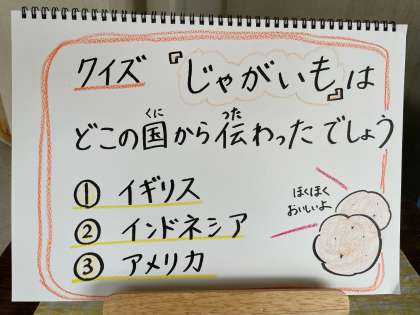 クイズ 『じゃがいも』は
どこの国から伝わったでしょう
くに
つた
① イギリス
② インドネシア
③ アメリカ
ほくほく
おいしいよ